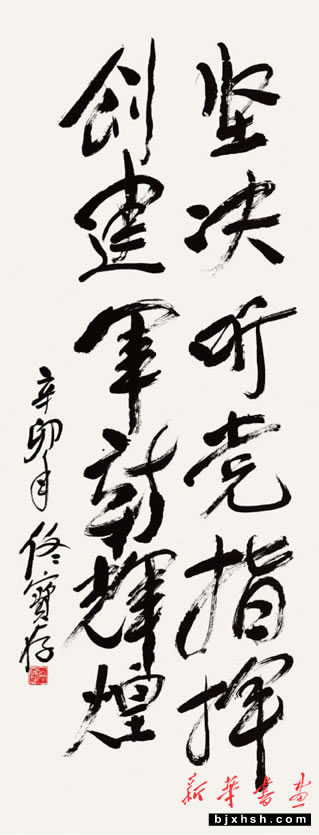 坚决听党指挥
创建军新輝煌
辛卯年 佟寶存
新華書画
bjxhsh.com